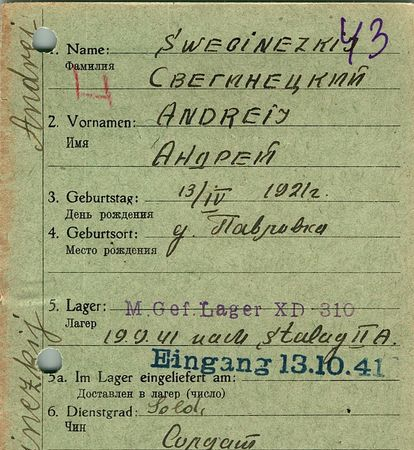 43
1. Name: SWEGINEZKIJ
Фамилия СВЕГИНЕЦКИЙ
2. Vornamen: ANDREIJ
Имя АНДРЕЙ
3. Geburtstag: 13/IV 1921г.
День рождения
4. Geburtsort: д. Павровка
Место рождения
5. Lager: M.Gef.Lager XD 310
Лагер 19.9.41 nach Stalag II A.
Eingang 13.10.41
5a. Im Lager eingeliefert am:
Доставлен в лагер (число)
6. Dienstgrad: Sold.
Чин Солдат
Andrej
inezkij